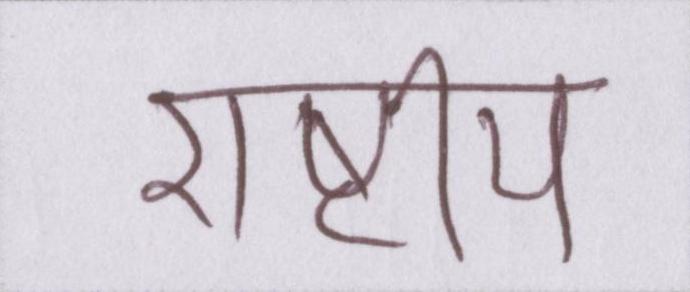 राष्ट्रीय